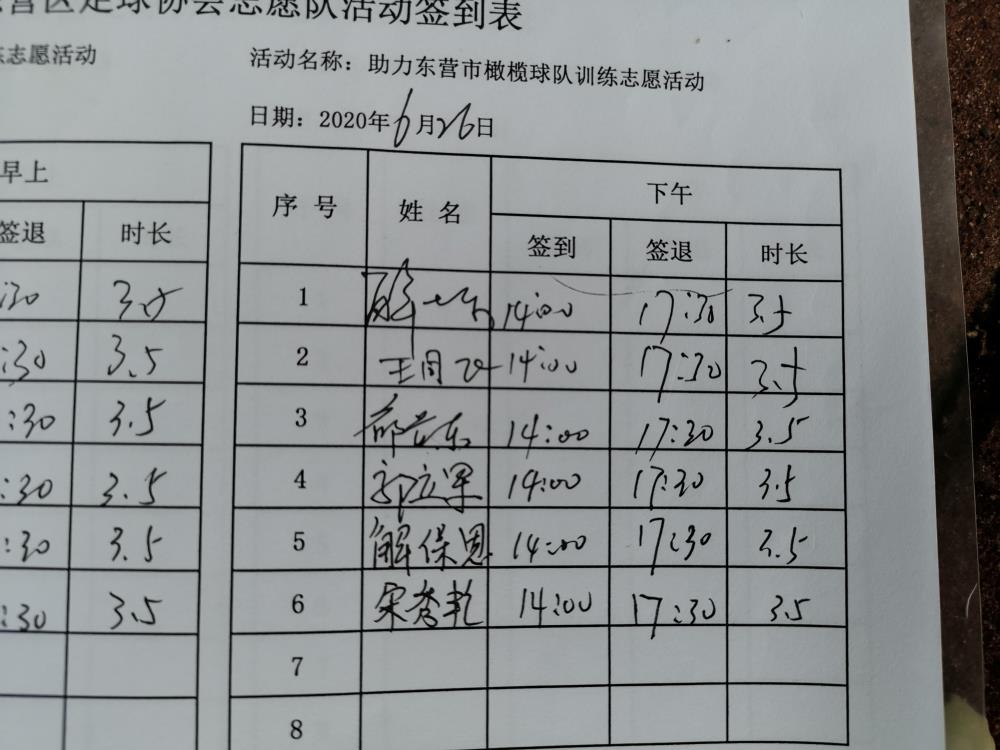 营区足球协会志愿队活动签到表
志愿活动
活动名称：助力东营市橄榄球队训练志愿活动
日期：2020年6月26日
早上
签退 时长
:30 3.5
:30 3.5
:30 3.5
:30 3.5
:30 3.5
:30 3.5
序号 姓名 下午
签到 签退 时长
1 14:00 17:30 3.5
2 14:00 17:30 3.5
3 14:00 17:30 3.5
4 郭立军 14:00 17:30 3.5
5 解保恩 14:00 17:30 3.5
6 宋秀乾 14:00 17:30 3.5
7
8